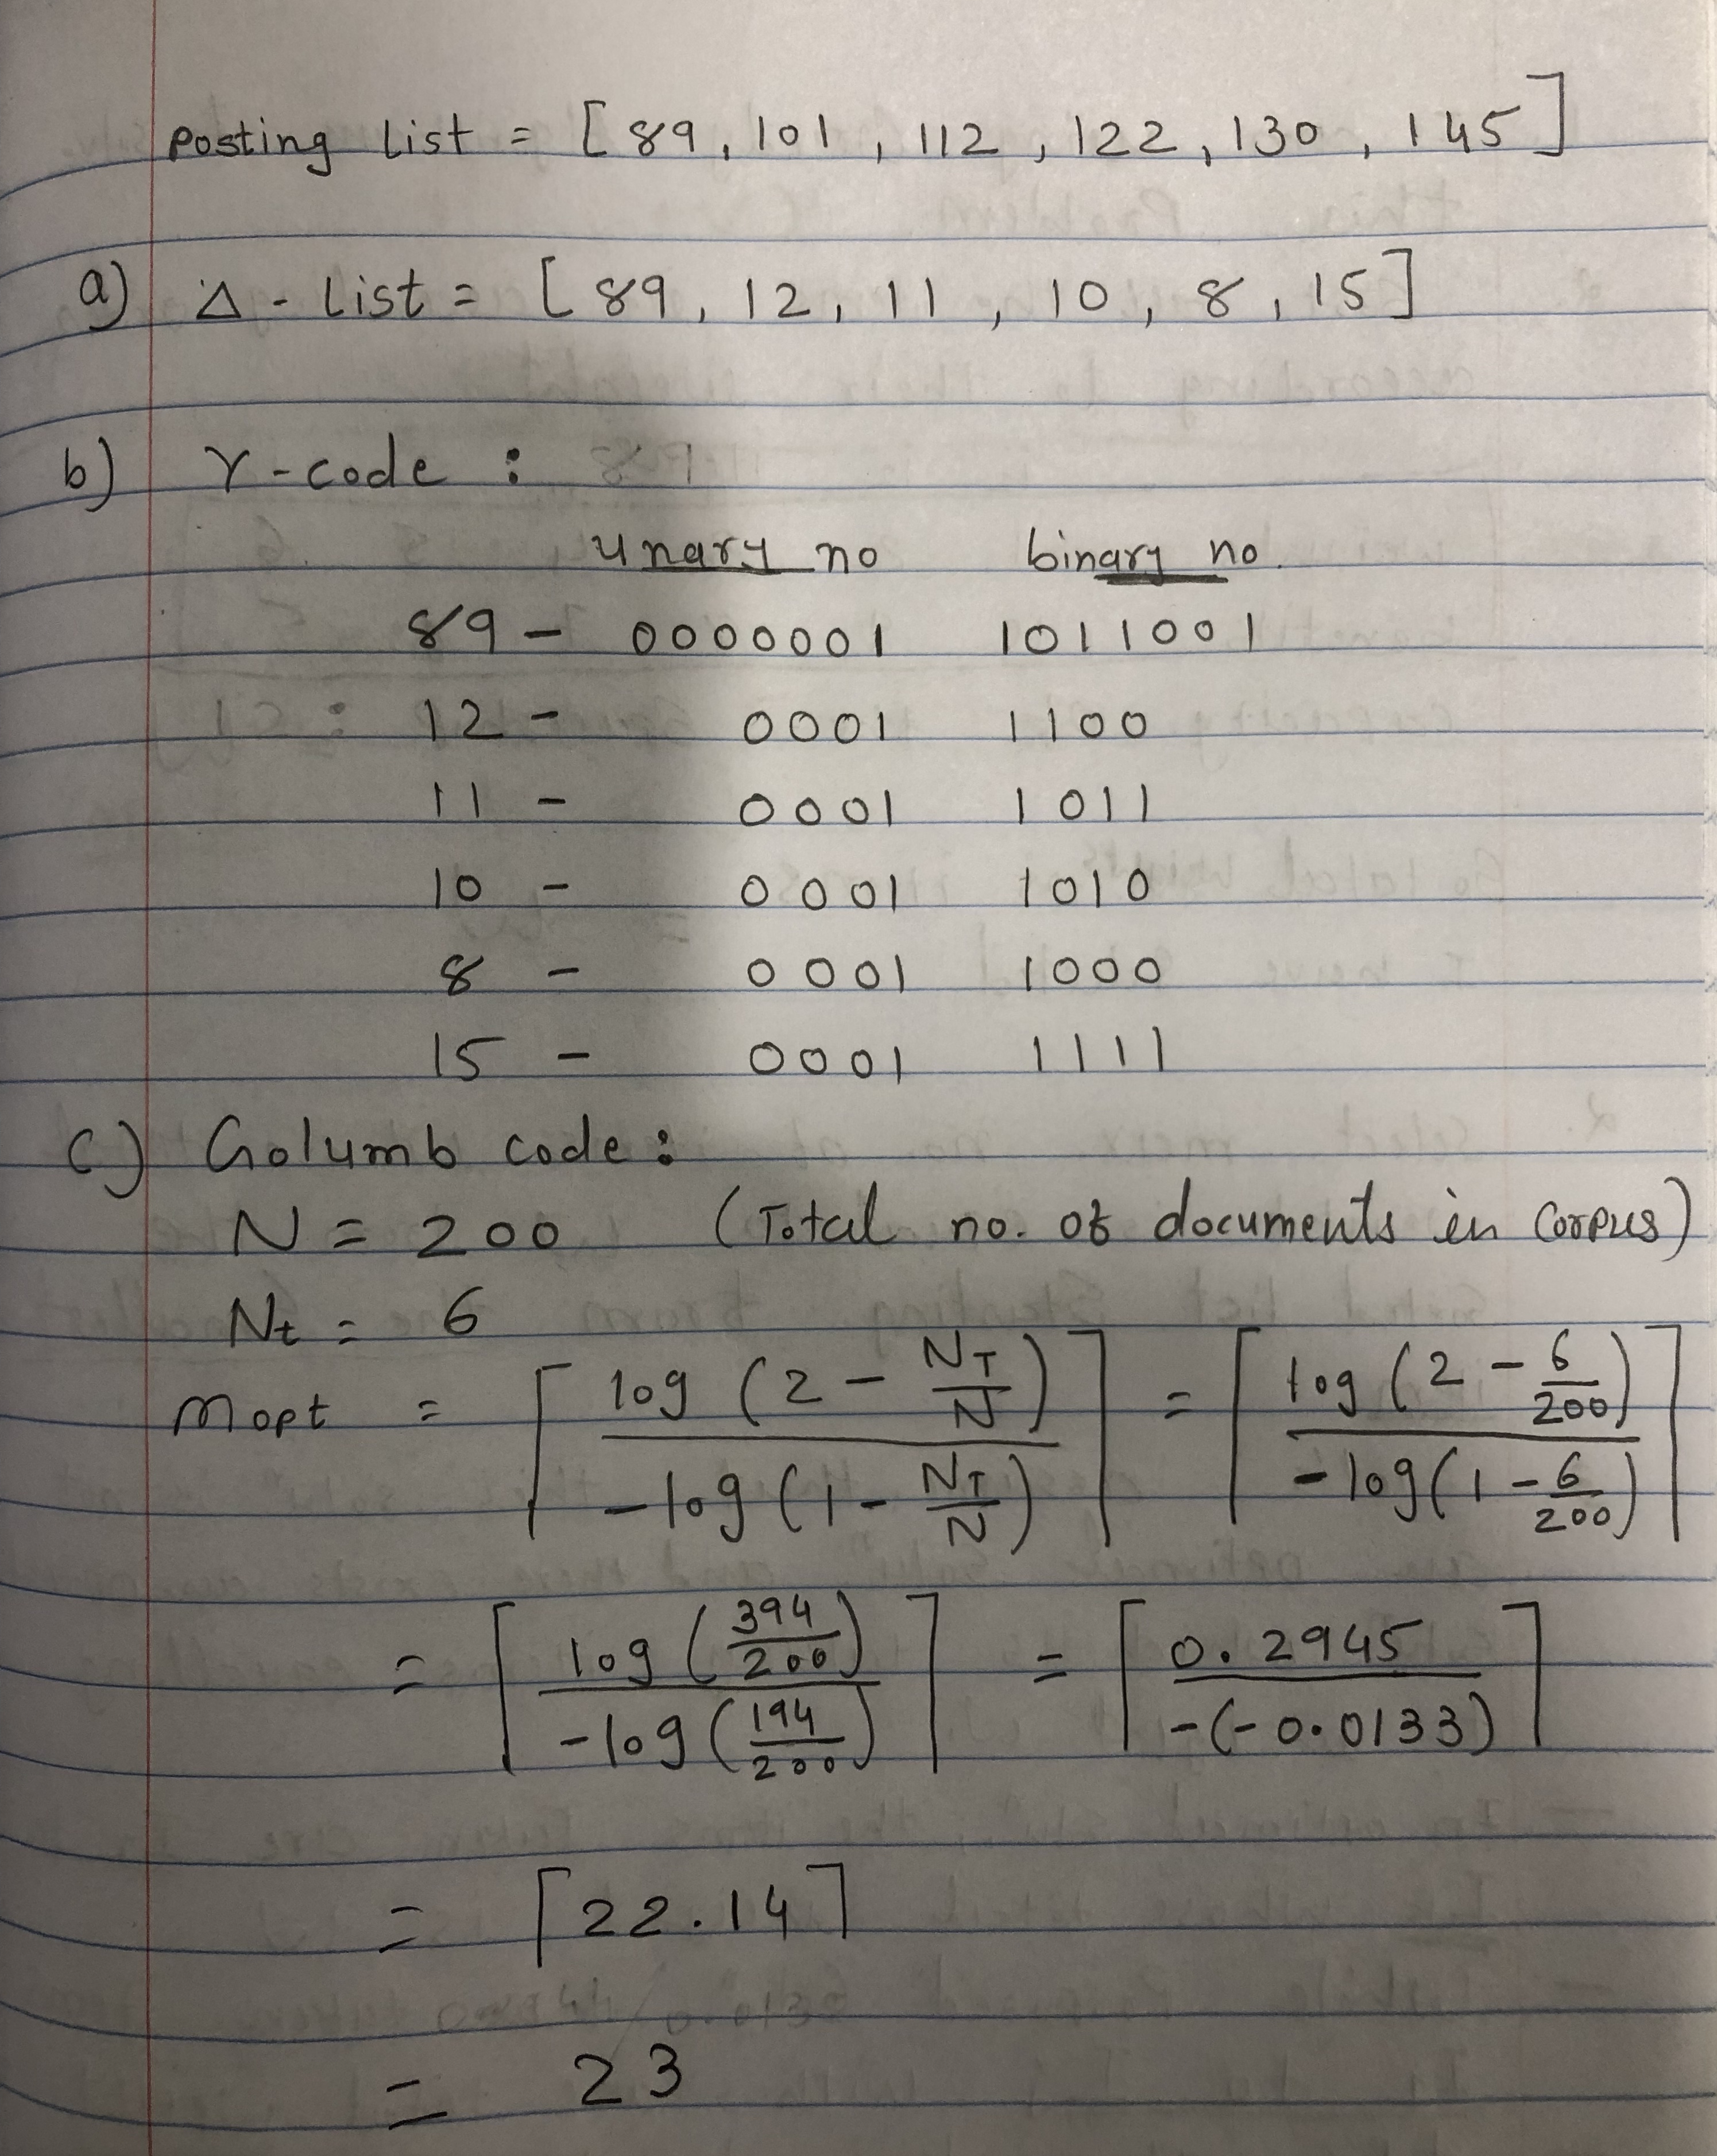 Posting List = [ 89, 101, 112, 122, 130, 145 ]
a) Δ - List = [ 89, 12, 11, 10, 8, 15 ]
b) γ-code :
unary no binary no.
89 - 0000001 1011001
12 - 0001 1100
11 - 0001 1011
10 - 0001 1010
8 - 0001 1000
15 - 0001 1111
c) Golumb code :
N = 200 (Total no. of documents in Corpus)
Nt = 6
Mopt = ⌈ log (2 - NT/N) / -log (1 - NT/N) ⌉ = ⌈ log (2 - 6/200) / -log (1 - 6/200) ⌉
= ⌈ log (394/200) / -log (194/200) ⌉ = ⌈ 0.2945 / -(-0.0133) ⌉
= ⌈ 22.14 ⌉
= 23